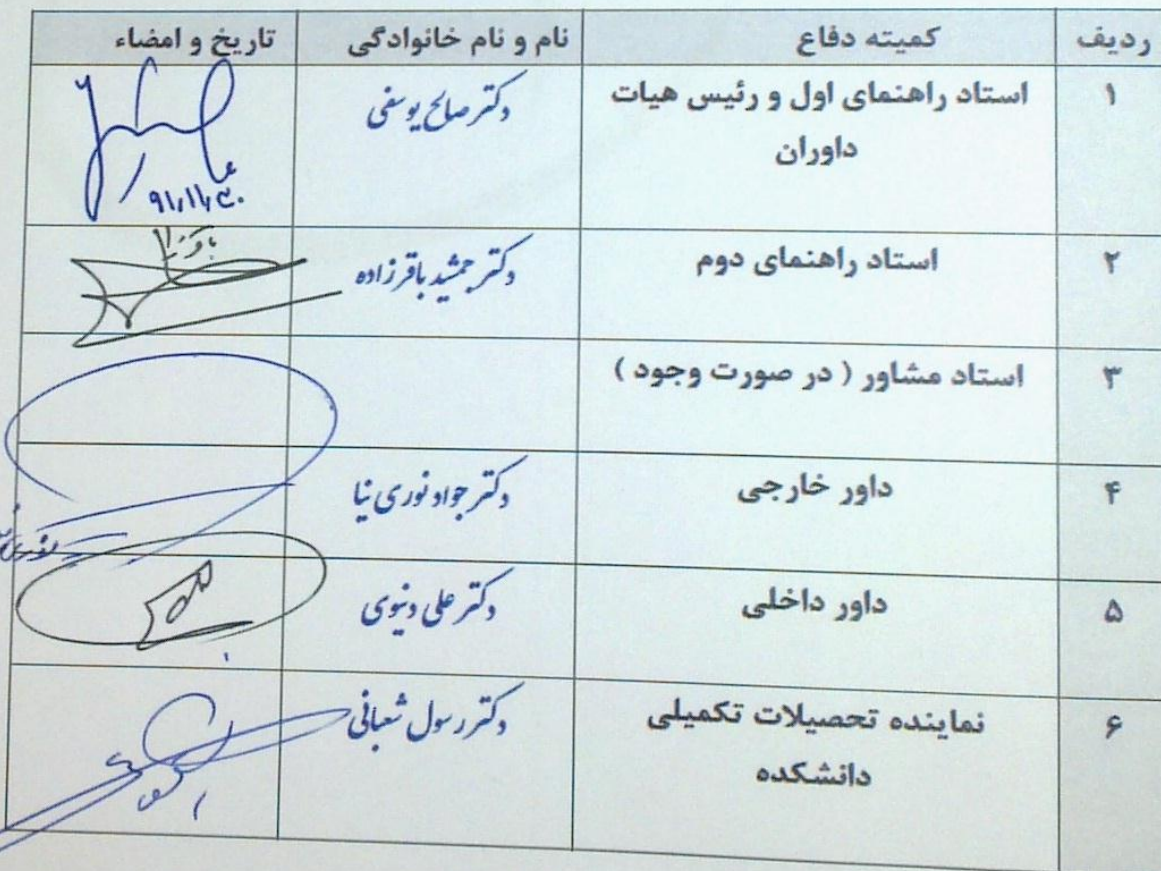 ردیف کمیته دفاع نام و نام خانوادگی تاریخ و امضاء
۱ استاد راهنمای اول و رئیس هیات دکتر صالح یوسفی
داوران
۹۱/۱۱/۳۰
۲ استاد راهنمای دوم دکتر جمشید باقرزاده
۳ استاد مشاور ( در صورت وجود )
۴ داور خارجی دکتر جواد نوری نیا
۵ داور داخلی دکتر علی دنیوی
۶ نماینده تحصیلات تکمیلی دکتر رسول شعبانی
دانشکده